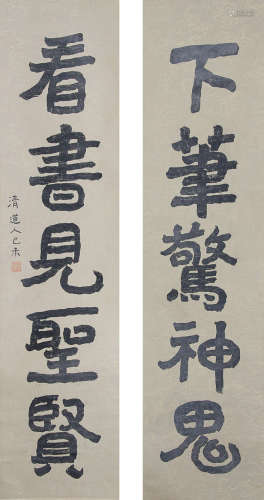 下筆驚神鬼
看書見聖賢
清道人己未